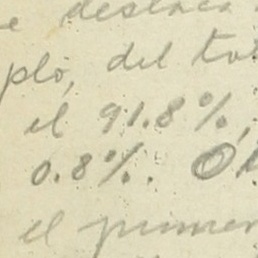 e destaca
plo, del to
el 91.8%,
0.8%. O
el primer